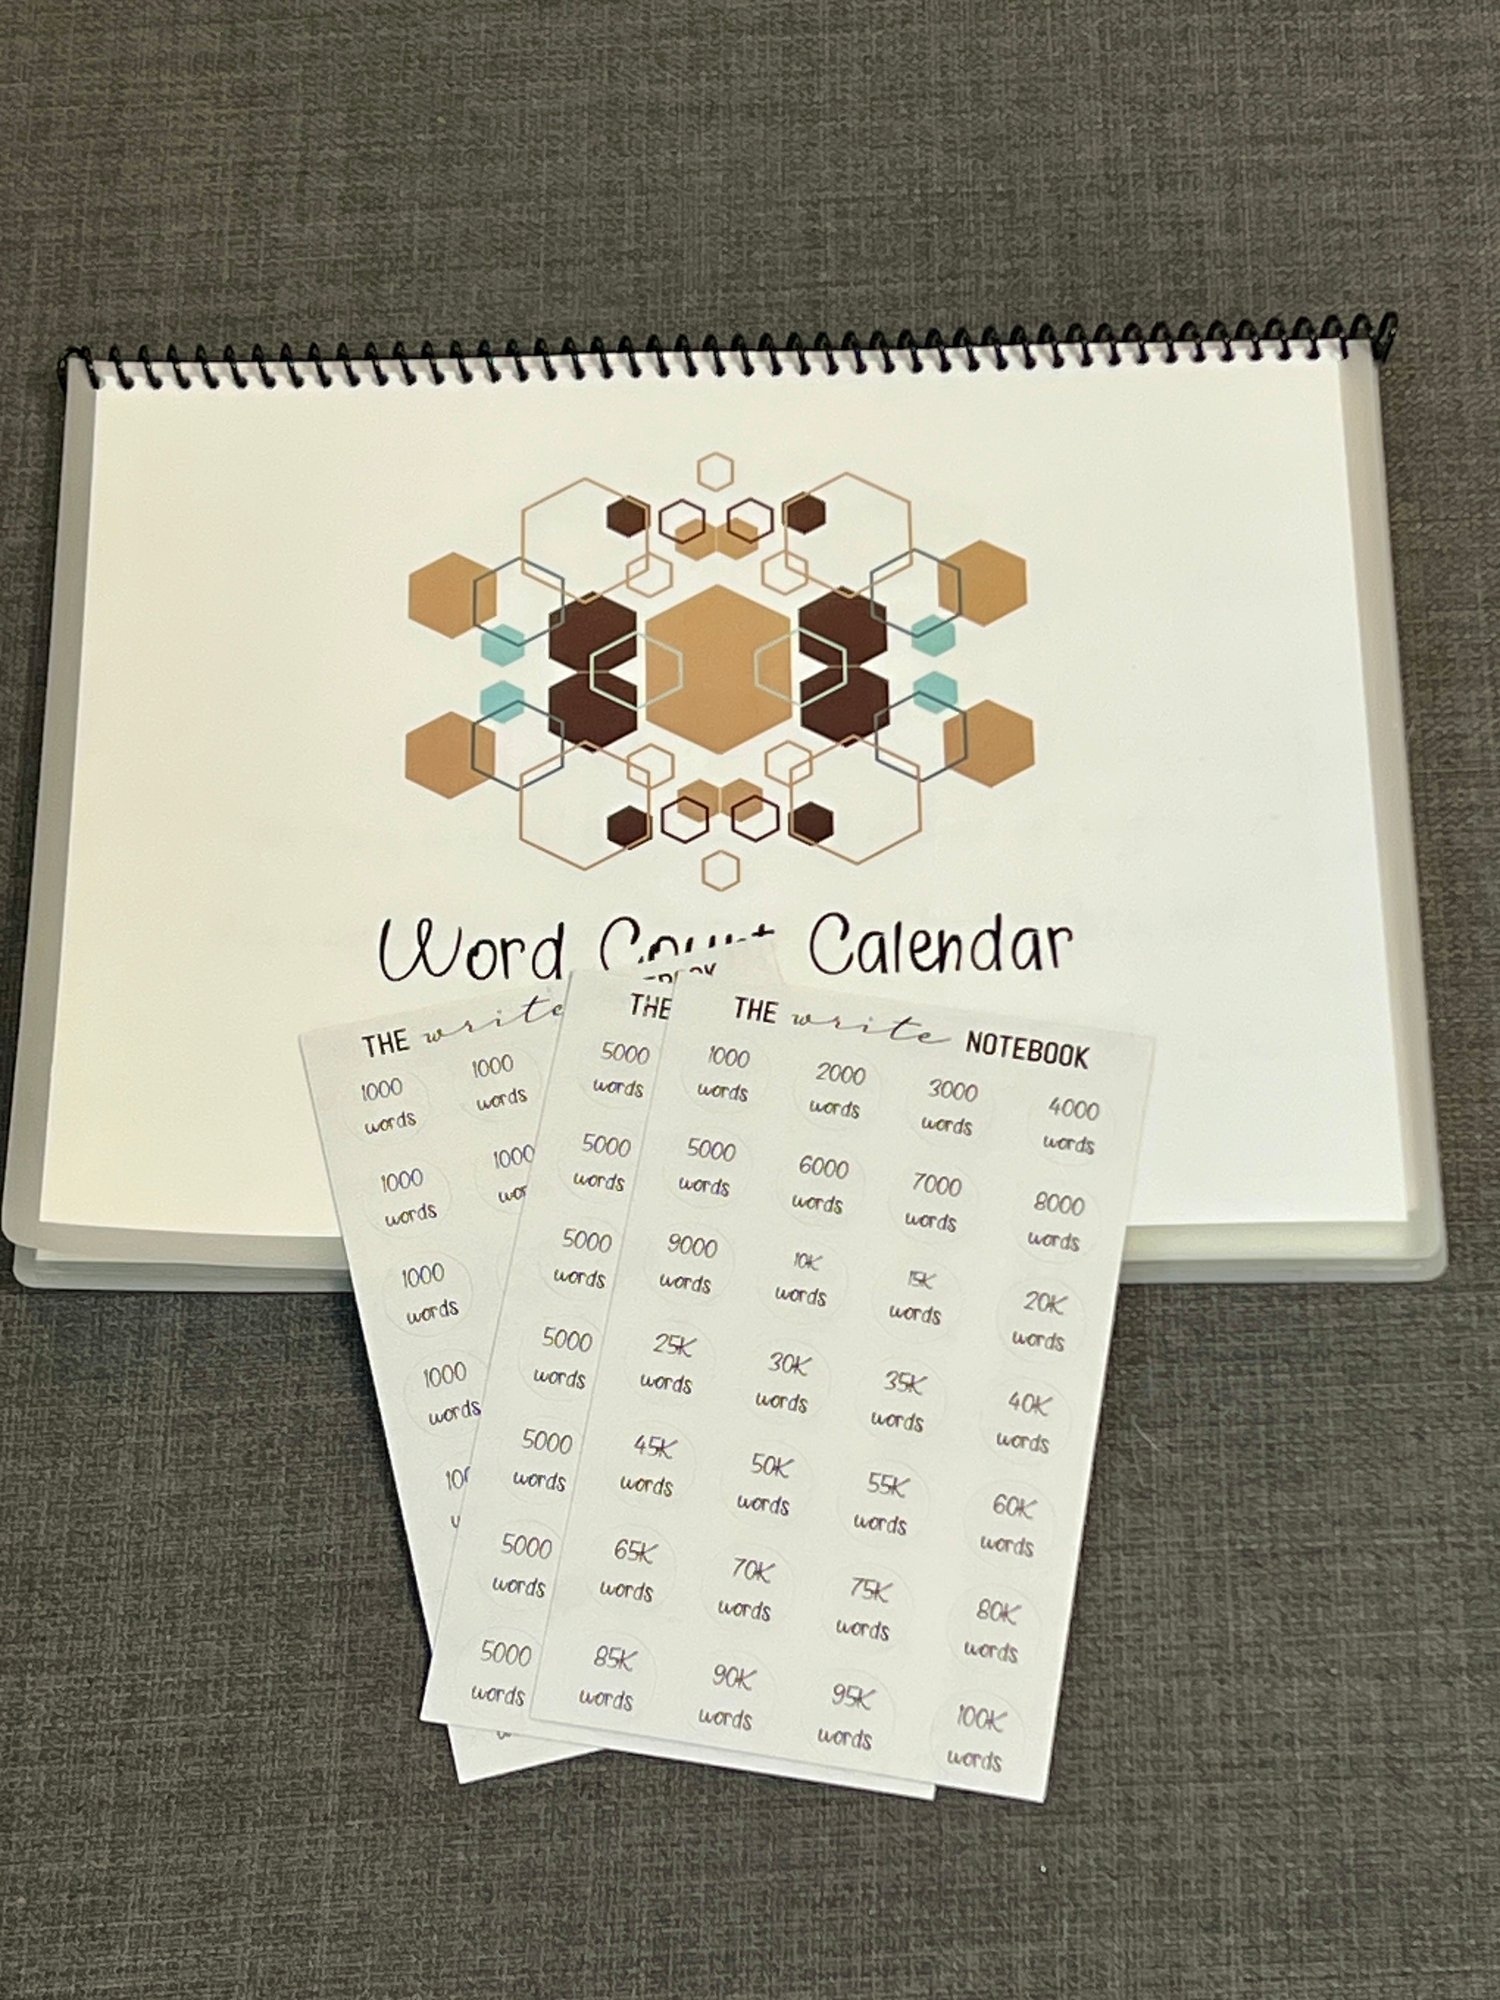 Word Count Calendar
THE write
1000 words
1000 words
1000 words
1000
1000 words
1000 words
THE
5000 words
5000 words
5000 words
5000 words
5000 words
5000 words
5000 words
THE write NOTEBOOK
1000 words
2000 words
3000 words
4000 words
5000 words
6000 words
7000 words
8000 words
9000 words
10K words
15K words
20K words
25K words
30K words
35K words
40K words
45K words
50K words
55K words
60K words
65K words
70K words
75K words
80K words
85K words
90K words
95K words
100K words